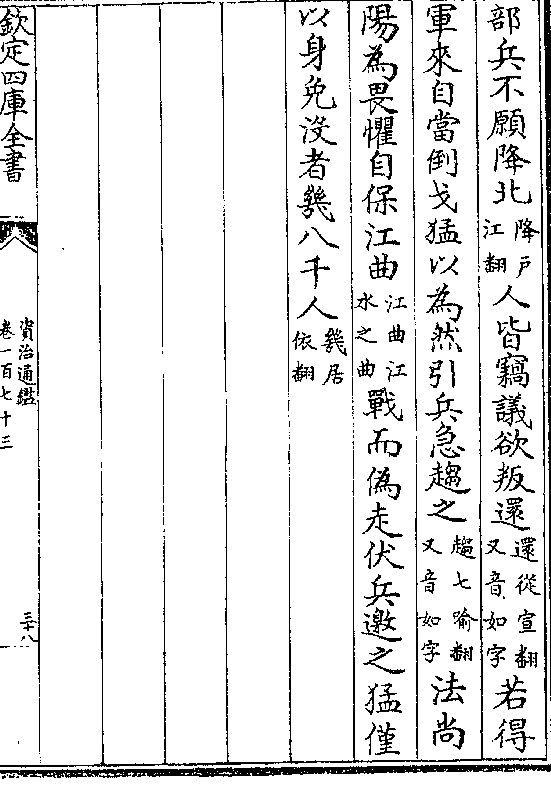 部兵不願降北降戶江翻人皆竊議欲叛還還從宣翻又音如字若得
軍來自當倒戈猛以為然引兵急趨之趨七喻翻又音如字法尚
陽為畏懼自保江曲江曲江水之曲戰而偽走伏兵邀之猛僅
以身免沒者㡬八千人㡬居依翻
欽定四庫全書
資治通鑑
卷一百七十三
三十八